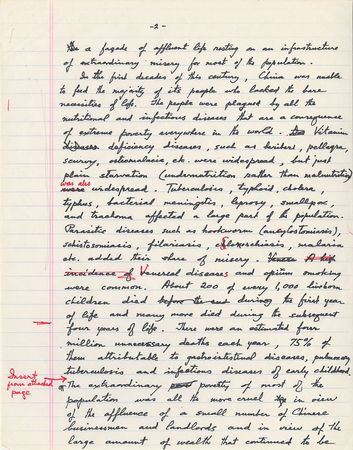 -2-
be a façade of affluent life resting on an infrastructure
of extraordinary misery for most of the population.
In the first decades of this century, China was unable
to feed the majority of its people who lacked the bare
necessities of life. The people were plagued by all the
nutritional and infectious diseases that are a consequence
of extreme poverty everywhere in the world. Vitamin
diseases deficiency diseases, such as beriberi, pellagra,
scurvy, osteomalacia, etc. were widespread, but just
plain starvation (undernutrition rather than malnutrition)
was also
were widespread. Tuberculosis, typhoid, cholera,
typhus, bacterial meningites, leprosy, smallpox,
and trachoma affected a large part of the population.
Parasitic diseases such as hookworm (ancylostomiasis),
schistosomiasis, filariasis, clonorchiasis, malaria
etc. added their share of misery. A high
incidence of Venereal diseases and opium smoking
were common. About 200 of every 1,000 liveborn
children died before the end during the first year
of life and many more died during the subsequent
four years of life. There were an estimated four
million unnecessary deaths each year, 75% of
them attributable to gastrointestinal diseases, pulmonary
tuberculosis and infectious diseases of early childhood.
Insert
from attached
page
The extraordinary poverty of most of the
population was all the more cruel in view
of the affluence of a small number of Chinese
businessmen and landlords and in view of the
large amount of wealth that continued to be